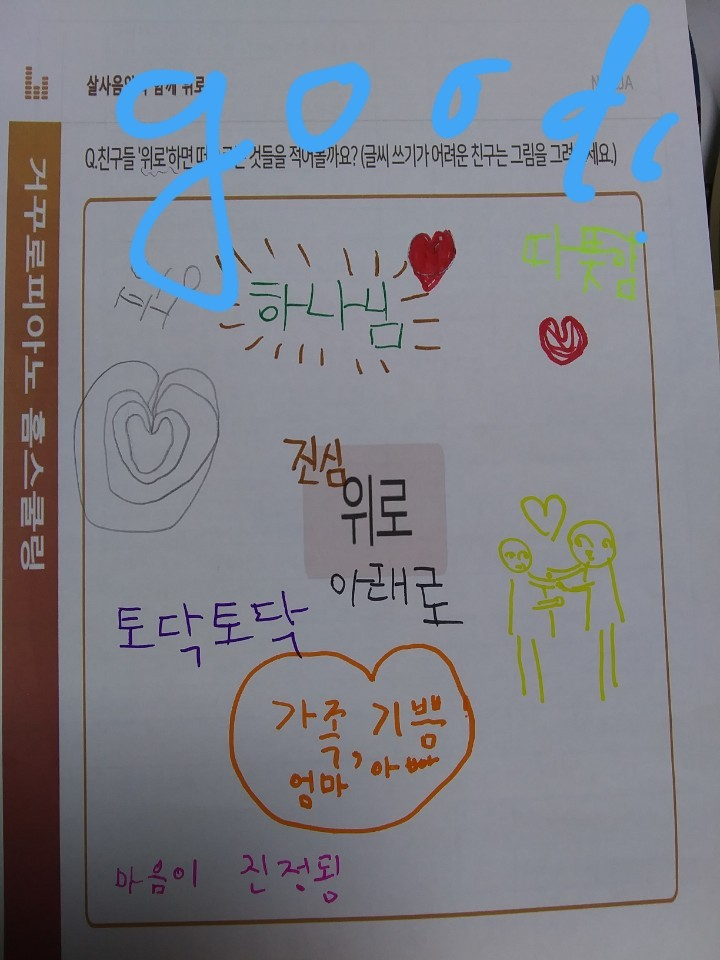 good.
Q.친구들 '위로'하면 떠오르는 것들을 적어볼까요? (글씨 쓰기가 어려운 친구는 그림을 그려주세요.)
하나님
따뜻힘
진심
위로
아래로
토닥토닥
가족, 기쁨
엄마 아빠
마음이 진정됨
거꾸로피아노 홈스쿨링